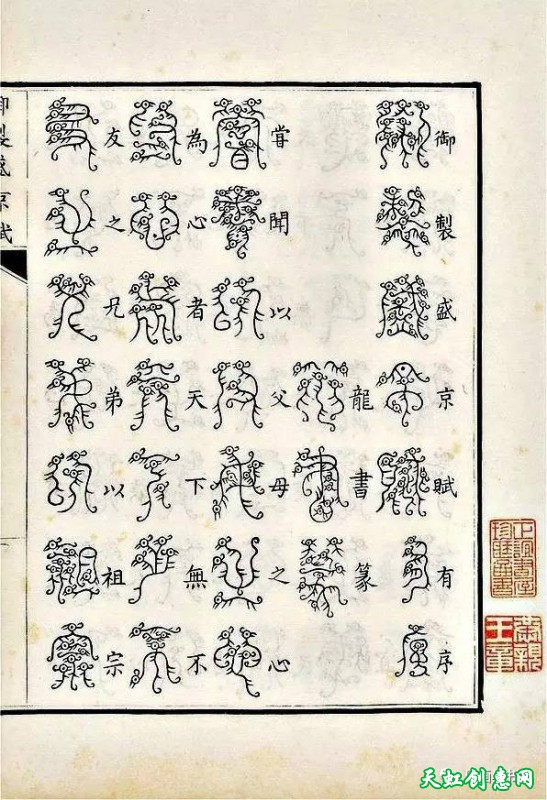 御製盛京賦有序
龍書篆
嘗聞以父母之心
為心者天下無不
友之兄弟以祖宗
御製盛京賦
天虹创意网